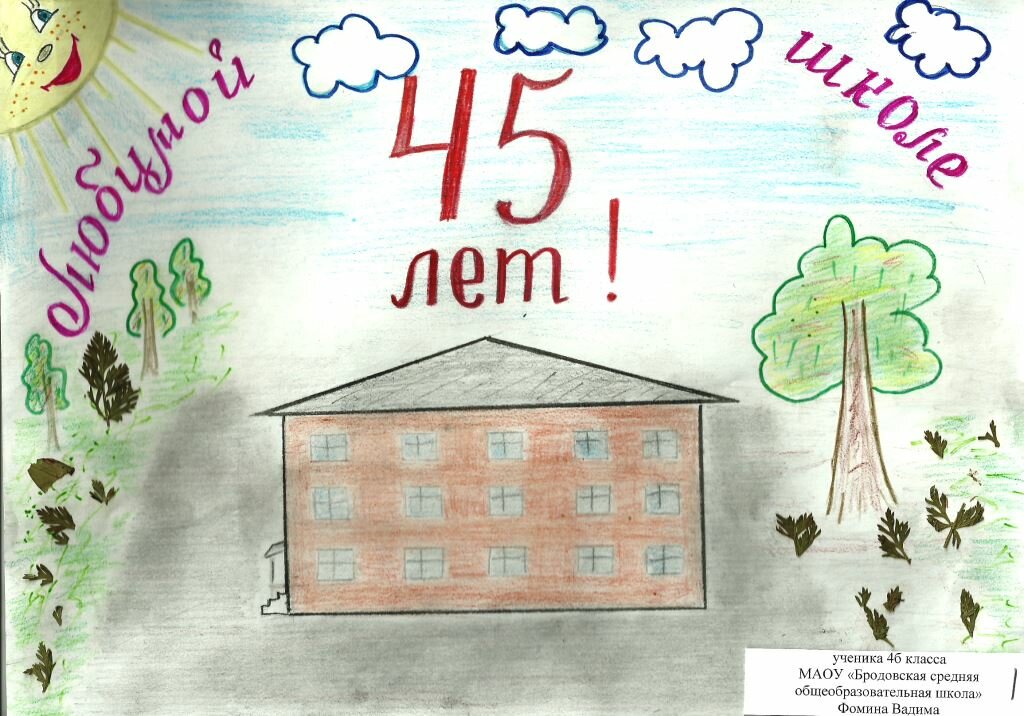 Любимой
школе
45
лет!
ученика 4б класса
МАОУ «Бродовская средняя
общеобразовательная школа»
Фомина Вадима